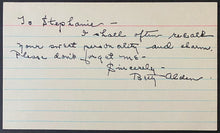 To Stephanie -
I shall often recall
your sweet personality and charm.
Please don't forget me -
Sincerely -
Betty Alden